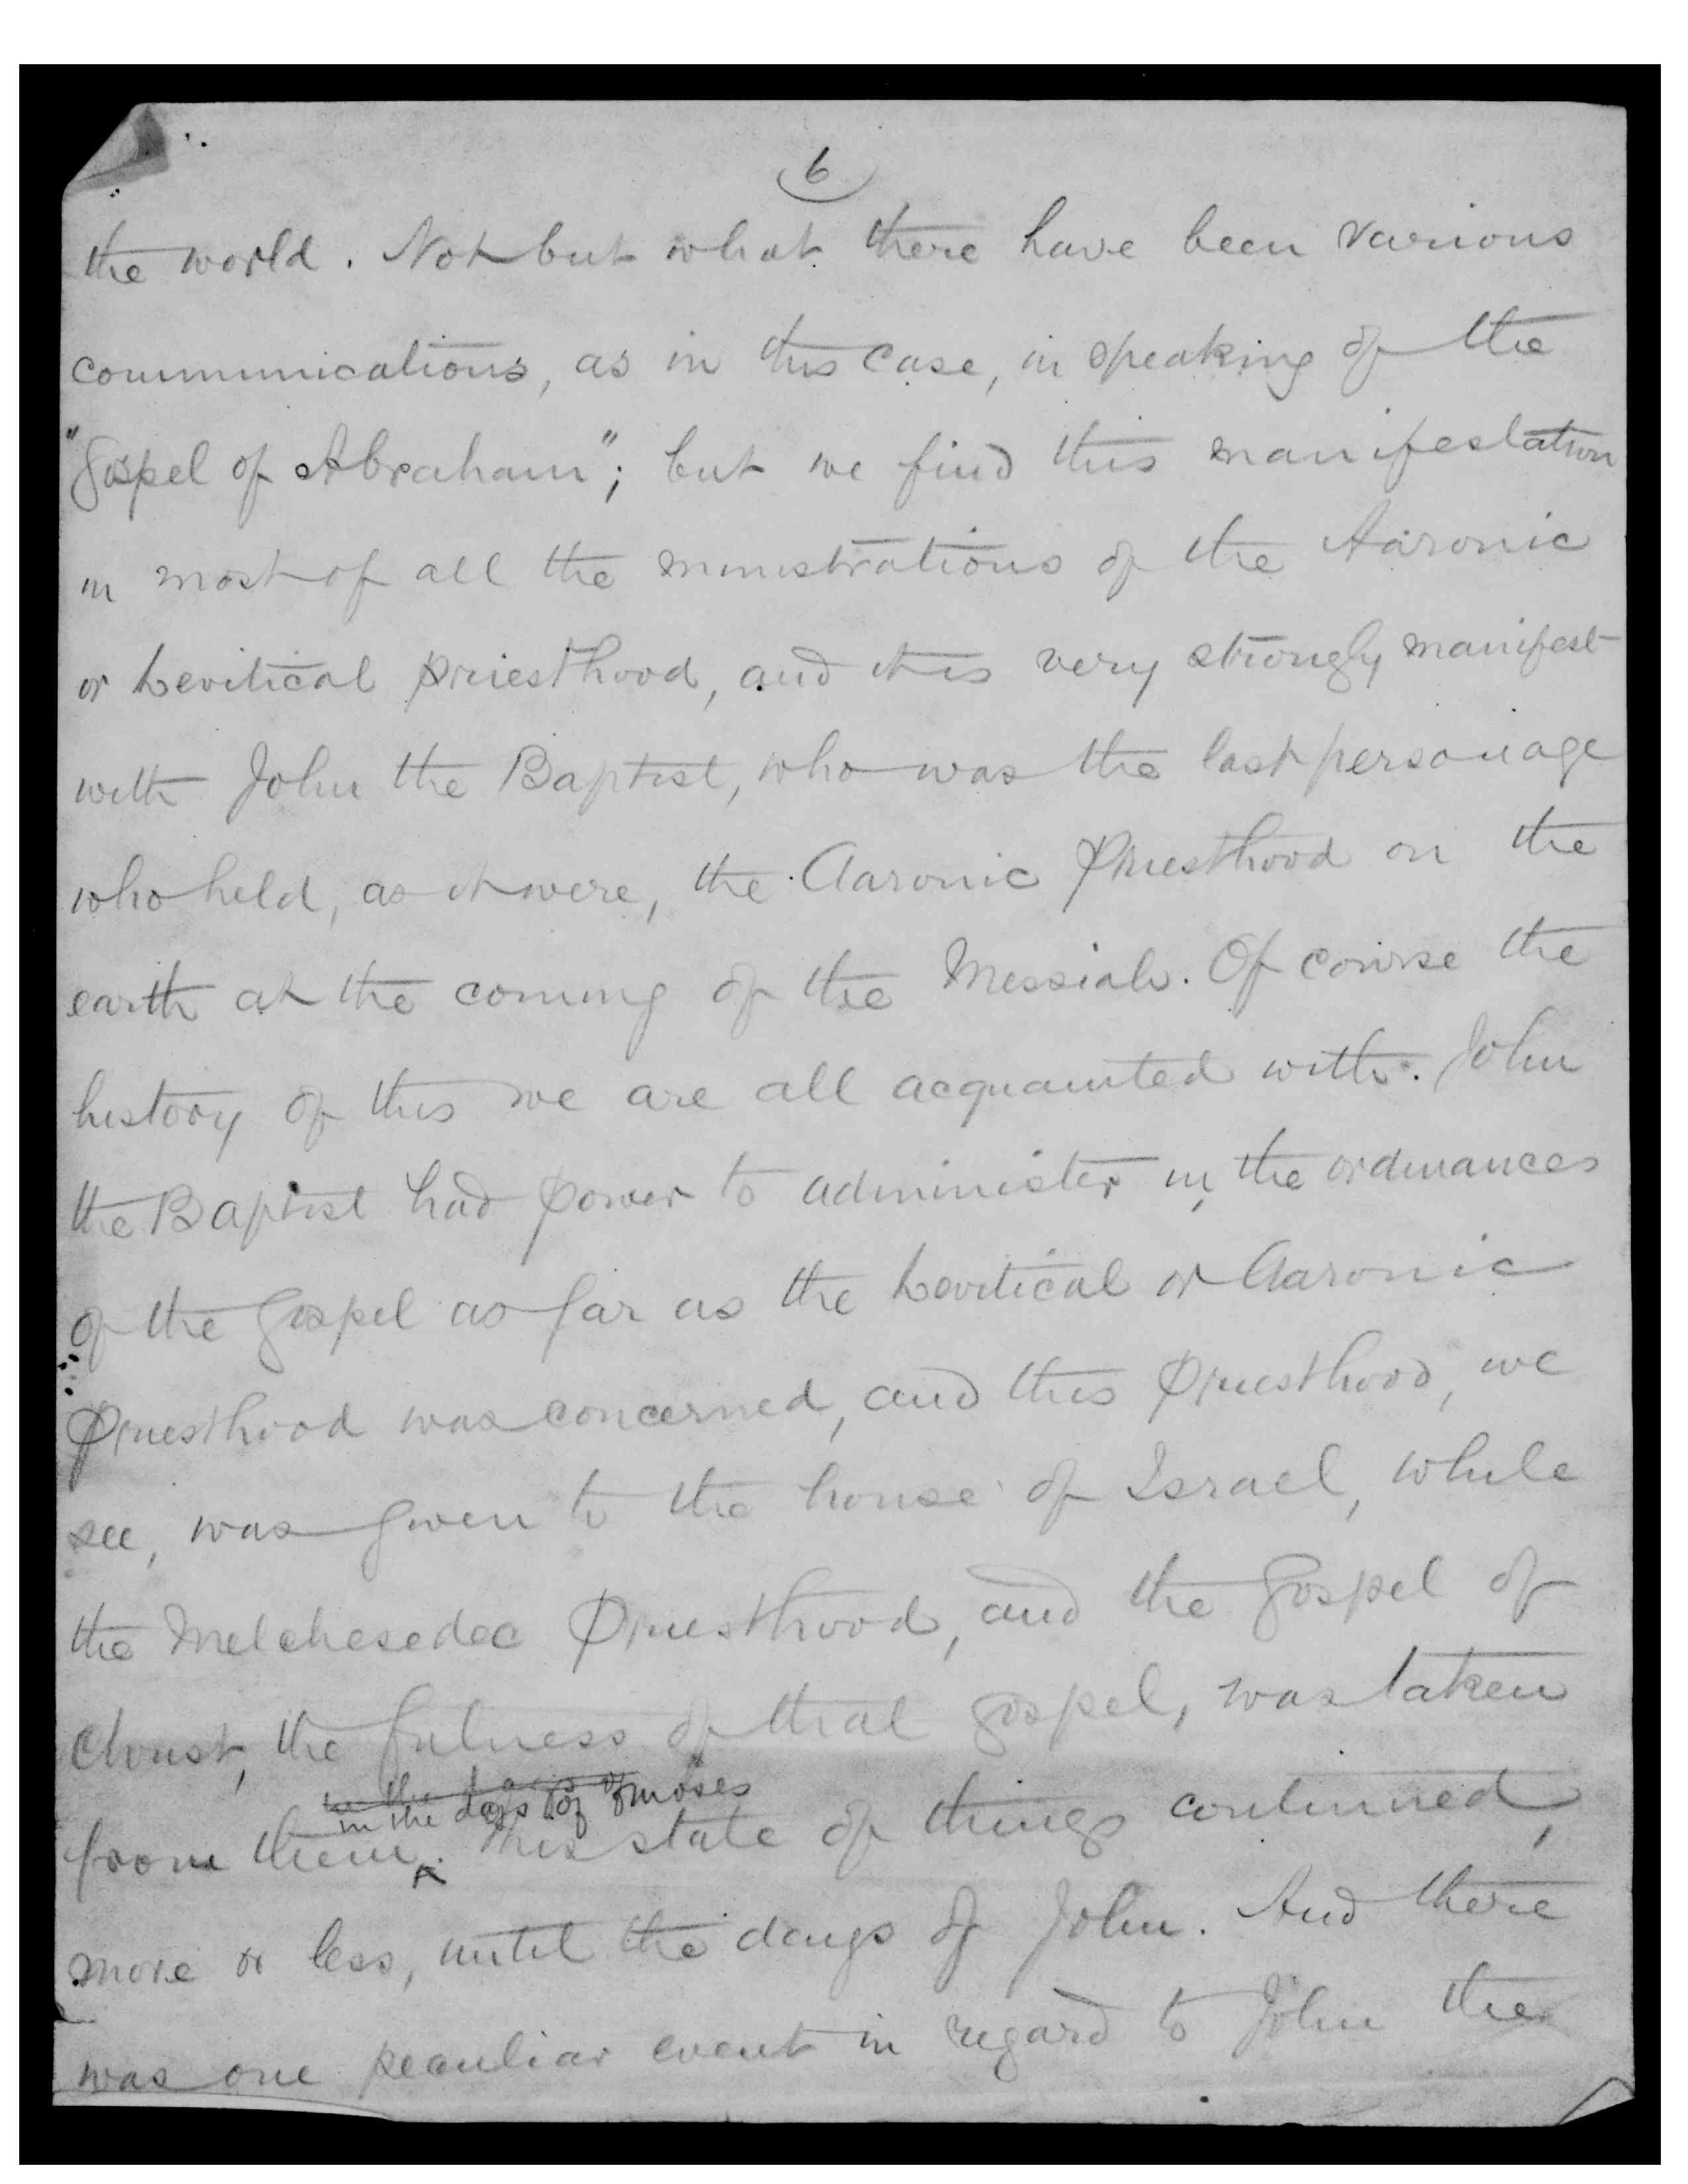 6
the world. Not but what there have been various
communications, as in this case, in speaking of the
"Gospel of Abraham"; but we find this manifestation
in most of all the ministrations of the Aaronic
or Levitical priesthood, and it is very strongly manifest
with John the Baptist, who was the last personage
who held, as it were, the Aaronic Priesthood on the
earth at the coming of the Messiah. Of course the
history of this we are all acquainted with. John
the Baptist had power to administer in the ordinances
of the Gospel as far as the Levitical or Aaronic
Priesthood was concerned, and this Priesthood, we
see, was given to the house of Israel, while
the Melchesedec Priesthood, and the Gospel of
Christ, the fulness of that gospel, was taken
in the days of
in the days of moses
from them. This state of things continued,
more or less, until the days of John. And there
was one peculiar event in regard to John the